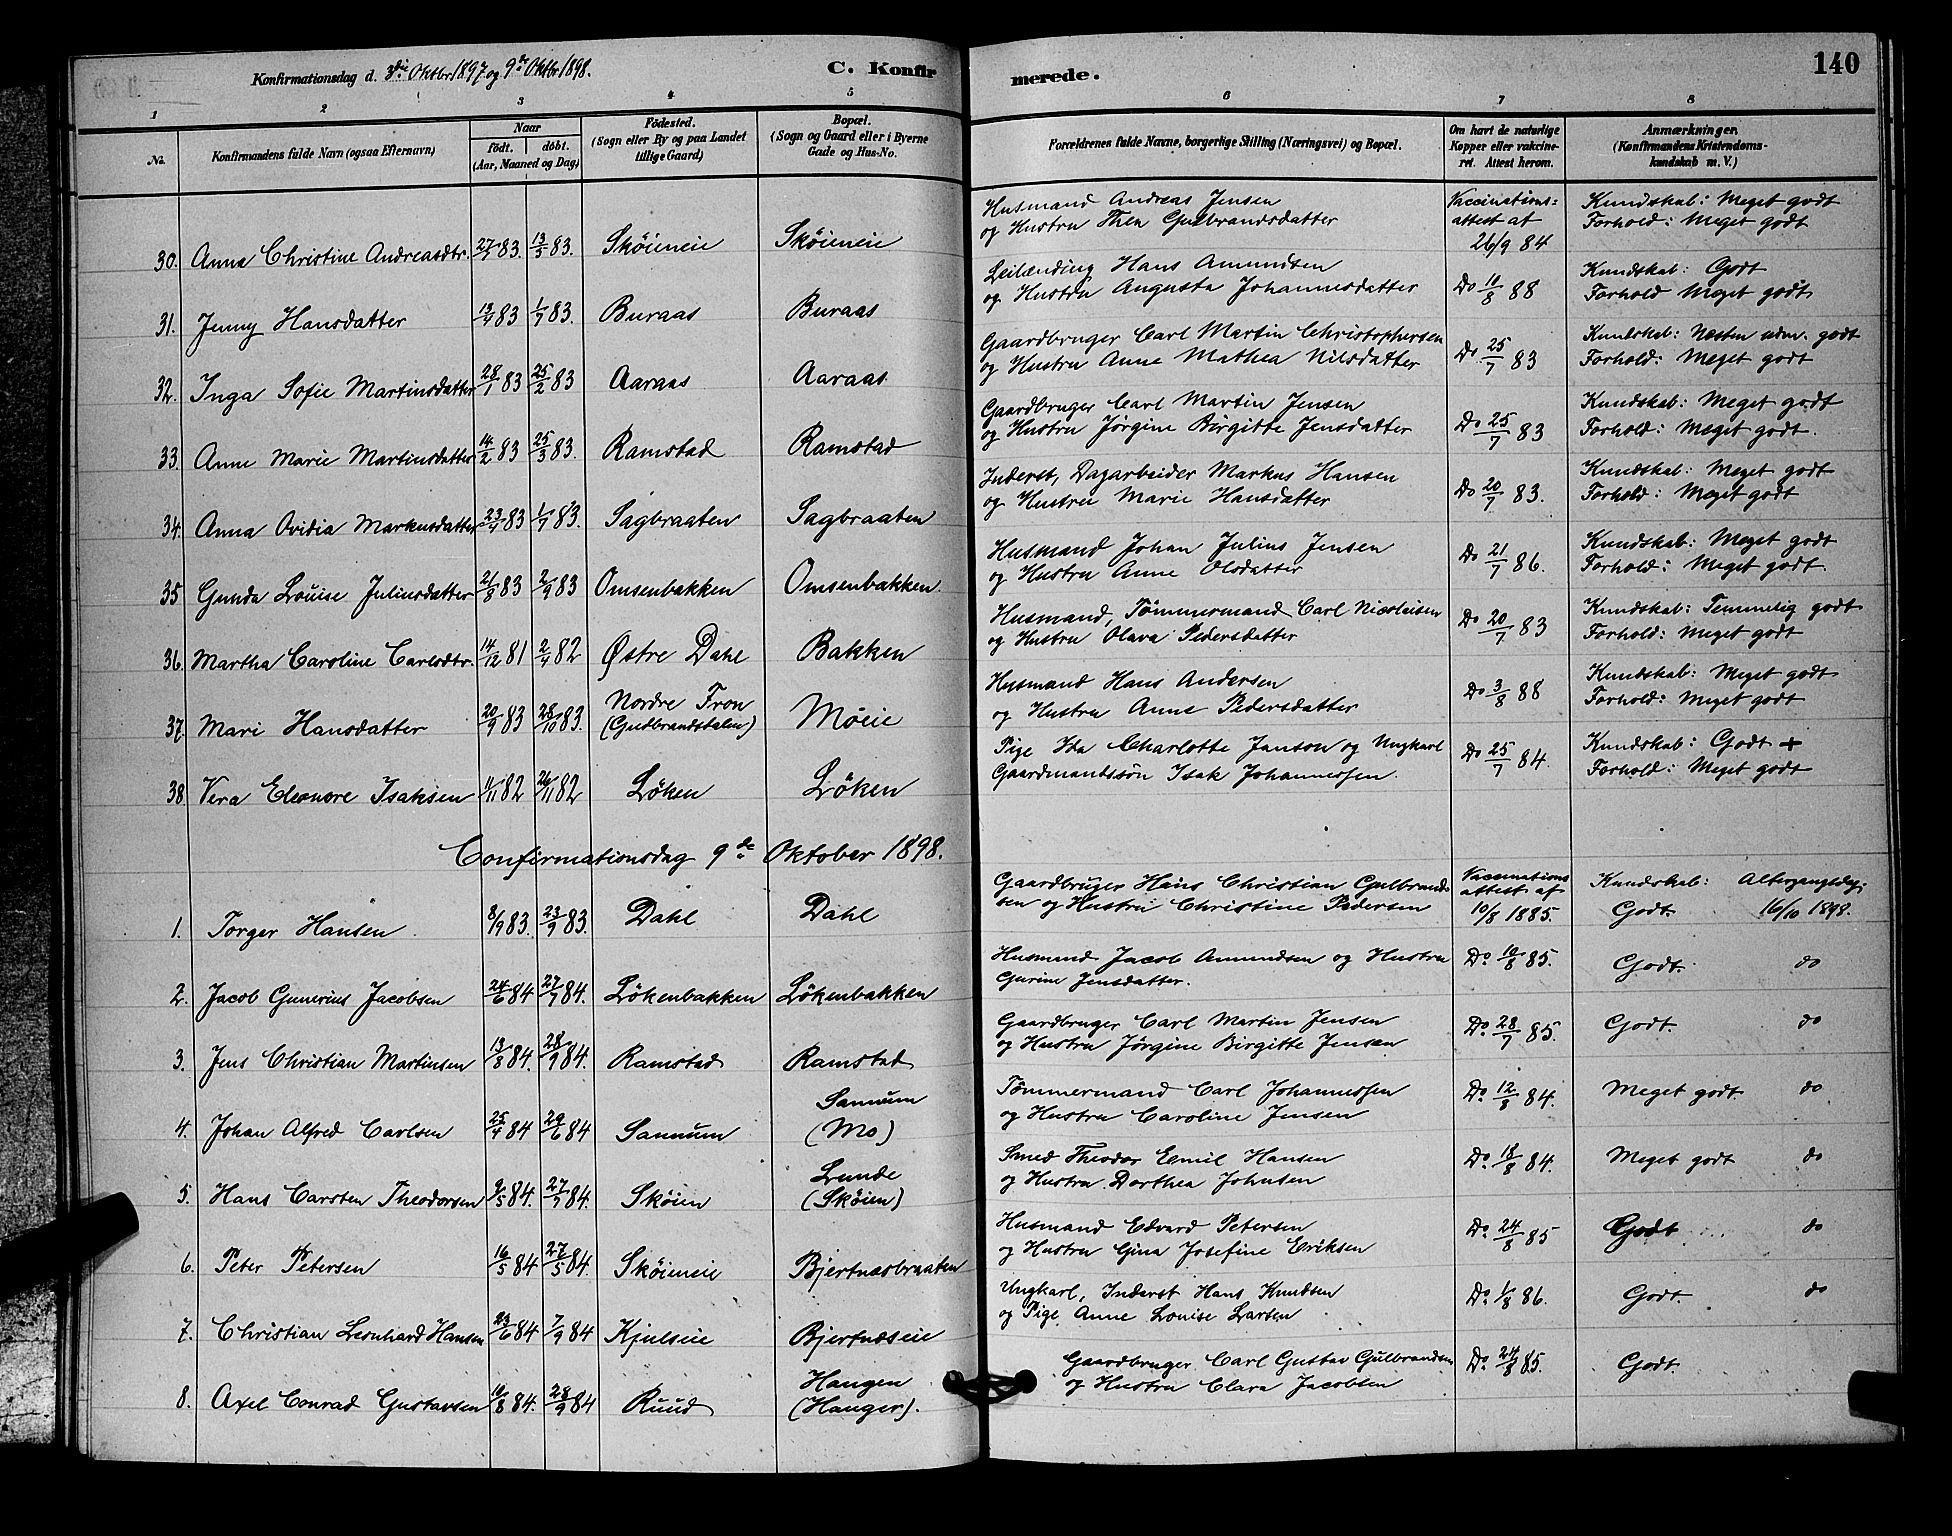 Konfirmationsdag d. 3die Oktbr 1897 og 9de Oktbr 1898.
C. Konfirmerede.
140
1 2 3 4 5 6 7 8
No.
Konfirmandens fulde Navn (ogsaa Efternavn)
Naar
født. døbt.
(Aar, Maaned og Dag)
Fødested.
(Sogn eller By og paa Landet
tillige Gaard)
Bopæl.
(Sogn og Gaard eller i Byerne
Gade og Hus-No.
Forældrenes fulde Navne, borgerlige Stilling (Næringsvei) og Bopæl.
Om havt de naturlige
Kopper eller vakcine-
ret. Attest herom.
Anmærkninger.
(Konfirmandens Kristendoms-
kundskab m. V.)
30. Anna Christine Andreasdtr. 83. 13/5 83. Skøieneie Skøieneie
Husmand Andreas Jensen
og Hustru Thea Gulbrandsdatter
Vaccinations-
attest af
26/9 84
Kundskab: Meget godt
Forhold: Meget godt
31. Jenny Hansdatter 83 1/7 83. Buraas Buraas
Leilænding Hans Amundsen
og Hustru Augusta Johannesdatter
Do 10/8 88
Kundskab: Godt
Forhold Meget godt
32. Inga Sofie Martinsdatter 28/1 83 25/2 83 Aaraas Aaraas
Gaardbruger Carl Martin Christophersen
og Hustru Anne Mathea Nilsdatter
Do 25/7 83
Kundskab: Næsten udm. godt
Forhold: Meget godt
33. Anne Marie Martinsdatter 14/2 83 25/3 83. Ramstad Ramstad
Gaardbruger Carl Martin Jensen
og Hustru Jørgine Birgitte Jensdatter
Do 25/7 83
Kundskab: Meget godt
Forhold: Meget godt.
34. Anna Ovidia Markusdatter 23/4 83 1/7 83. Sagbraaten Sagbraaten
Inderst, Dagarbeider Markus Hansen
og Hustru Marie Hansdatter
Do 20/7 83.
Kundskab: Meget godt
Forhold: Meget godt
35 Gunda Louise Juliusdatter 21/8 83 2/9 83 Omsenbakken Omsenbakken.
Husmand Johan Julius Jensen
og Hustru Anne Olsdatter
Do 21/7 86.
Kundskab: Meget godt
Forhold: Meget godt.
36. Martha Caroline Carlsdtr. 14/12 81 2/4 82 Østre Dahl Bakken
Husmand, Tømmermand Carl Nicolaisen
og Hustru Olava Pedersdatter
Do 20/7 83
Kundskab: Temmelig godt
Forhold: Meget godt
37. Mari Hansdatter 20/9 83 28/10 83. Nordre Fron
(Gudbrandsdalen) Møeie
Husmand Hans Andersen
og Hustru Anne Pedersdatter
Do 3/8 88
Kundskab: Meget godt
Forhold: Meget godt
38. Vera Eleonore Isaksen /11 82 26/11 82 Løken Løken
Pige Ida Charlotte Janson og Ungkarl
Gaardmandssøn Isak Johannessen.
Do 25/7 84.
Kundskab: Godt +
Forhold: Meget godt
Confirmationsdag 9de Oktober 1898.
1. Torger Hansen. 8/9 83. 23/9 83. Dahl Dahl
Gaardbruger Hans Christian Gulbrand-
sen og Hustru Christine Pedersen
Vaccinations
attest af
10/8 1885.
Kundskab: Altergangsdag:
Godt. 16/10 1898.
2. Jacob Gunerius Jacobsen 24/6 84 27/7 84. Løkenbakken Løkenbakken
Husmand Jacob Amundsen og Hustru
Gurine Jensdatter.
Do. 10/8 85.
Godt. do
3. Jens Christian Martinsen 13/8 84. 28/9 84. Ramstad Ramstad
Gaardbruger Carl Martin Jensen
og Hustru Jørgine Birgitte Jensen
Do. 28/7 85.
Godt. do
4. Johan Alfred Carlsen 25/4 84 29/6 84 Sannum Sannum
(Mo)
Tømmermand Carl Johannessen
og Hustru Caroline Jensen
Do. 12/8 84.
Meget godt do
5. Hans Carsten Theodorsen 9/5 84. 27/7 84. Skøien Lunde
(Skøien)
Smed Theodor Emil Hansen
og Hustru Dorthea Johnsen
Do. 18/8 84.
Meget godt do
6. Peter Petersen 16/5 84 27/5 84. Skøieneie Bjertnæsbraaten
Husmand Edvard Petersen
og Hustru Gina Josefine Eriksen
Do. 24/8 85
Godt do
7. Christian Leonhard Hansen 23/6 84 7/9 84 Kjulseie Bjertnæseie
Ungkarl, Inderst Hans Knudsen
og Pige Anne Louise Larsen
Do. 1/8 86.
Godt. do
8. Axel Conrad Gustavsen 10/8 84. 28/9 84 Ruud Haugen
(Hauger).
Gaardbruger Carl Gustav Gulbrandsen
og Hustru Clara Jacobsen
Do. 24/8 85.
Godt.